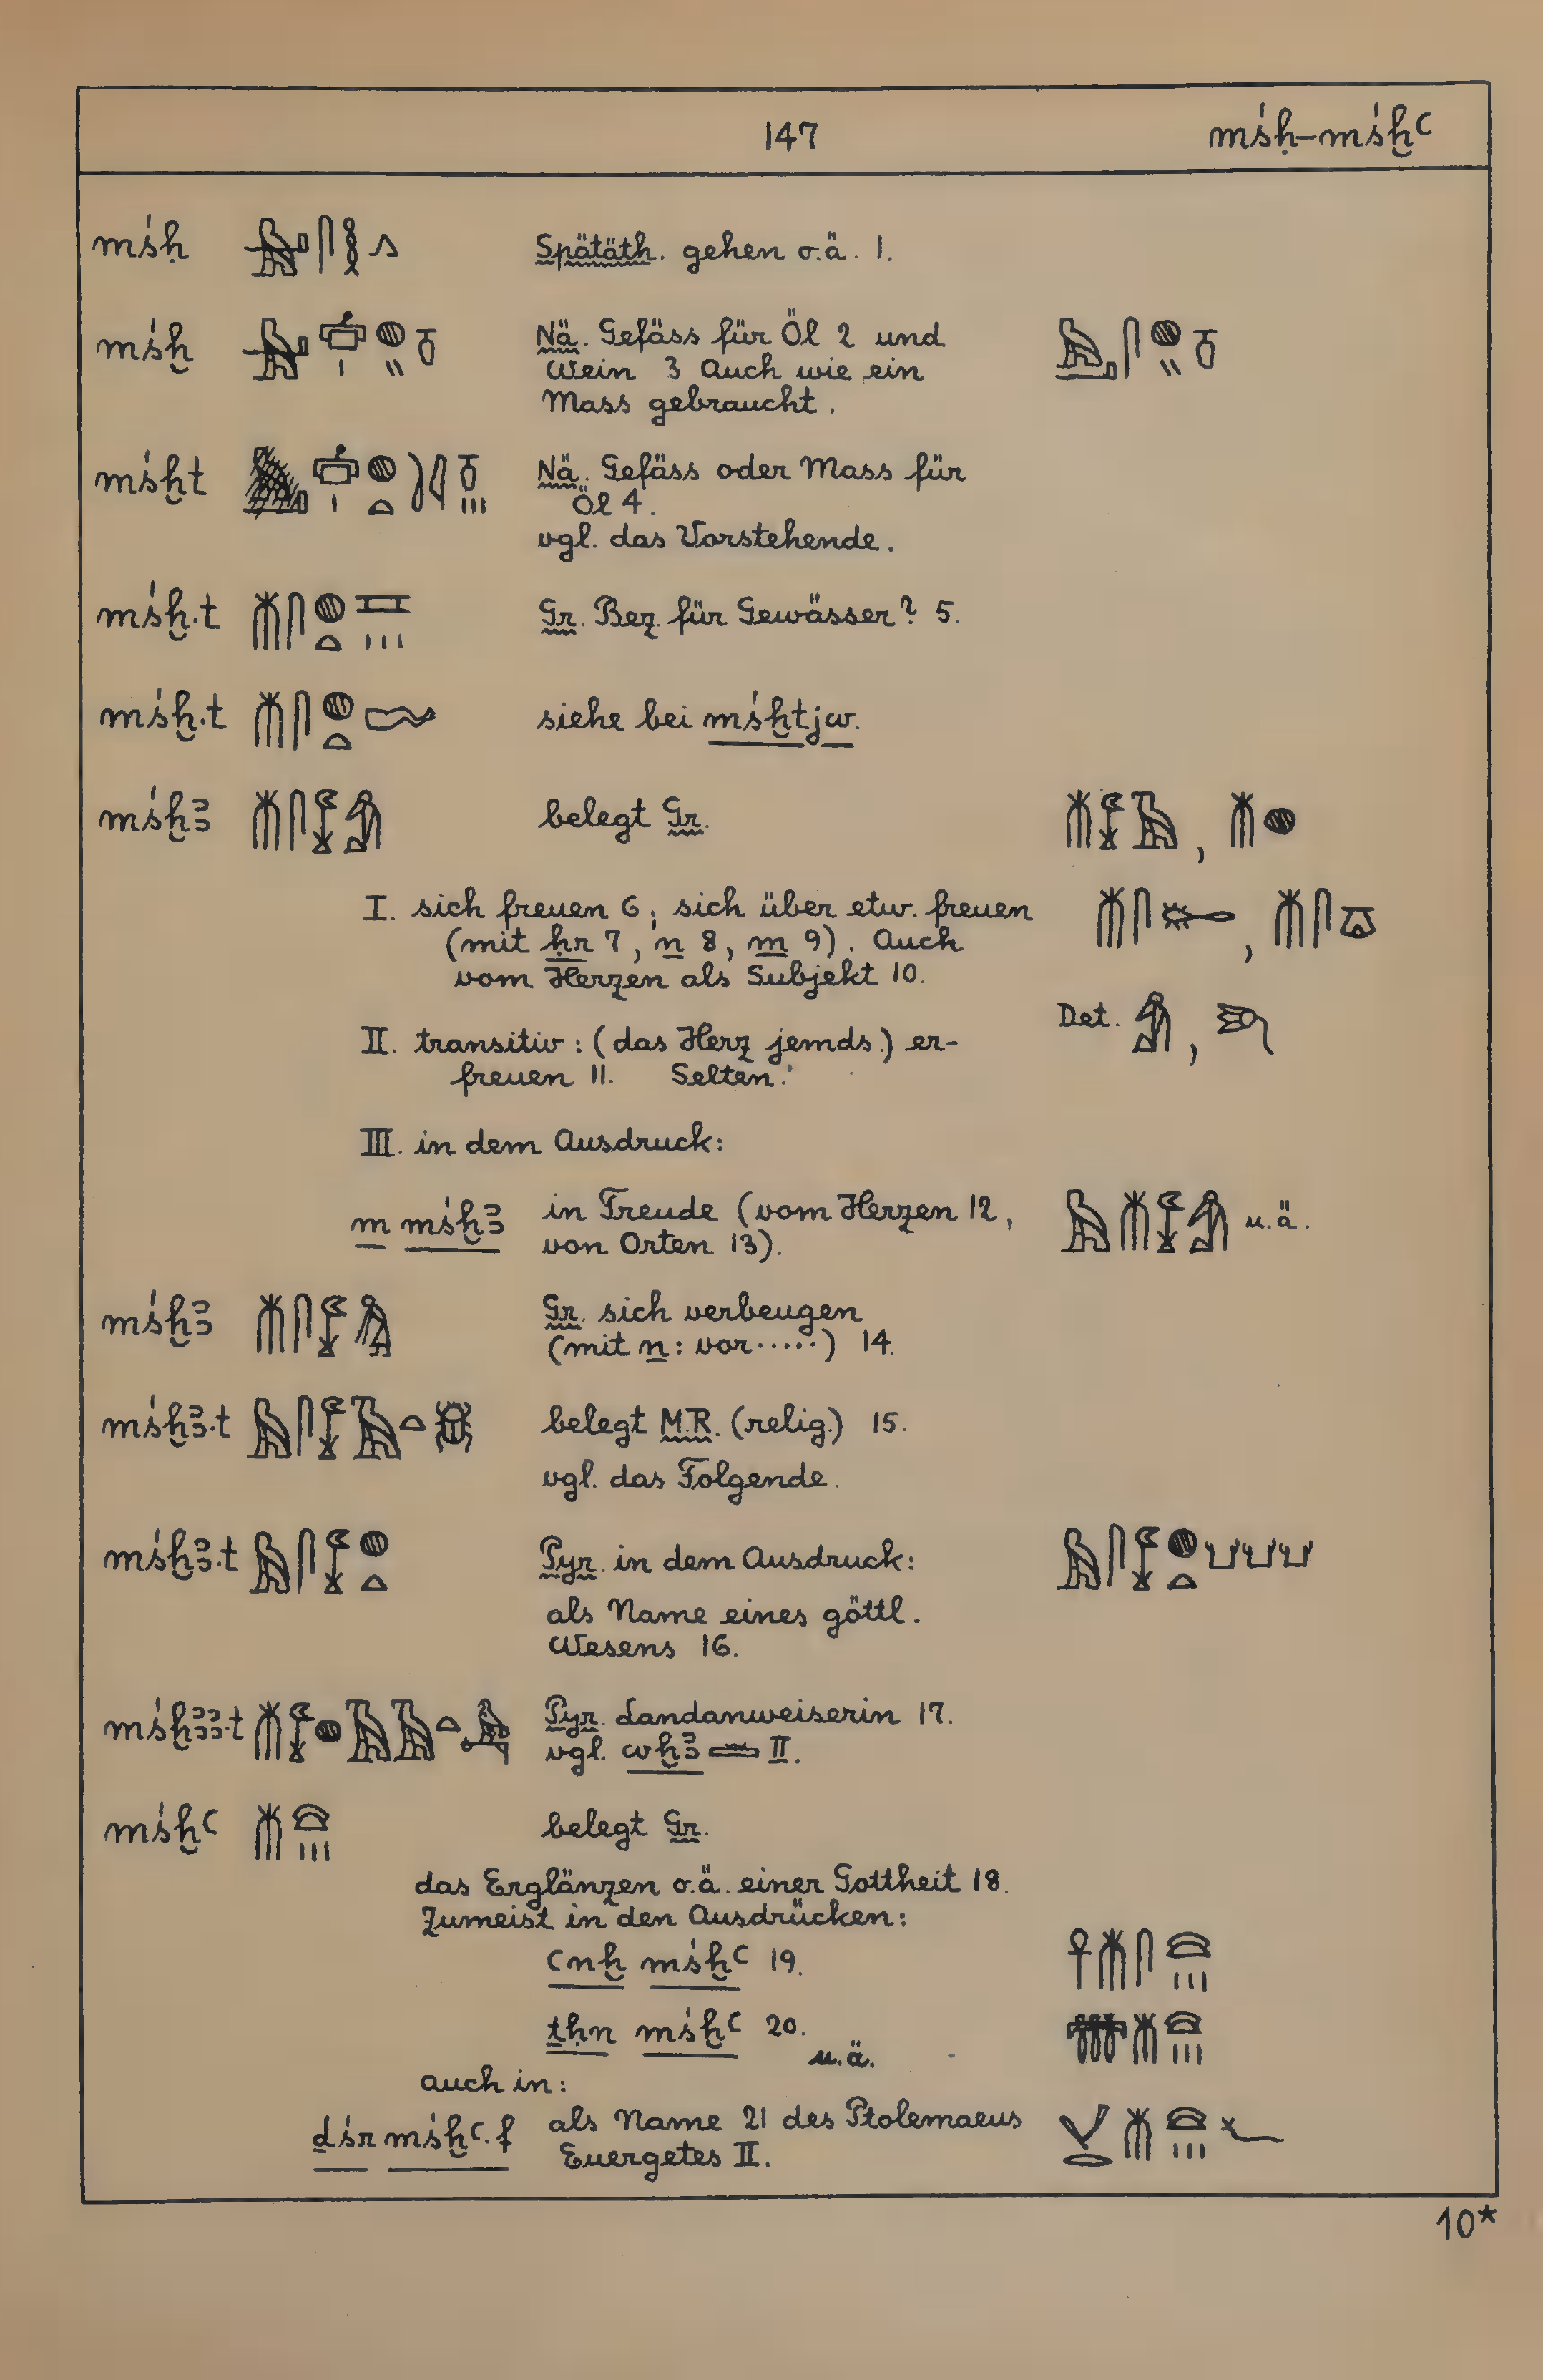 147 mśḥ–mśḫꜥ
mśḥ Spätäth. gehen o.ä. 1.
mśḫ Nä. Gefäss für Öl 2 und
Wein 3 Auch wie ein
Mass gebraucht.
mśḫt Nä. Gefäss oder Mass für
Öl 4.
vgl. das Vorstehende.
mśḫ.t Gr. Bez. für Gewässer? 5.
mśḫ.t siehe bei mśḫtjw.
mśḫꜣ belegt Gr.
I. sich freuen 6; sich über etw. freuen
(mit ḥr 7, n 8, m 9). Auch
vom Herzen als Subjekt 10.
Det.
II. transitiv: (das Herz jemds.) er-
freuen 11. Selten.
III. in dem Ausdruck:
m mśḫꜣ in Freude (vom Herzen 12, u.ä.
von Orten 13).
mśḫꜣ Gr. sich verbeugen
(mit n: vor.....) 14.
mśḫꜣ.t belegt M.R. (relig.) 15.
vgl. das Folgende.
mśḫꜣ.t Pyr. in dem Ausdruck:
als Name eines göttl.
Wesens 16.
mśḫꜣꜣ.t Pyr. Landanweiserin 17.
vgl. wḫꜣ II.
mśḫꜥ belegt Gr.
das Erglänzen o.ä. einer Gottheit 18.
Zumeist in den Ausdrücken:
ꜥnḫ mśḫꜥ 19.
ṯḥn mśḫꜥ 20.
u.ä.
auch in:
ḏśr mśḫꜥ.f als Name 21 des Ptolemaeus
Euergetes II.
10*